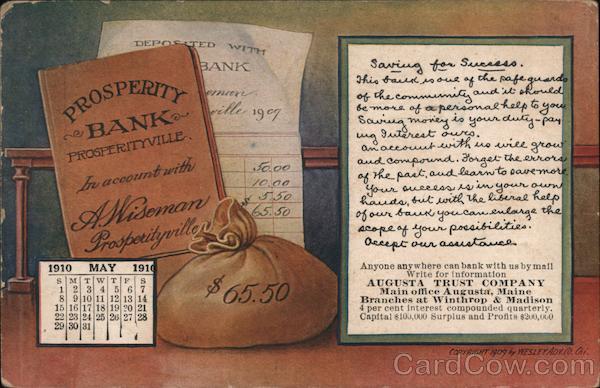 DEPOSITED WITH
BANK
Wiseman
ville 1907
50.00
10.00
5.50
65.50
PROSPERITY
BANK
PROSPERITYVILLE.
In account with
A. Wiseman
Prosperityville
$65.50
1910 MAY 1910
S M T W T F S
1 2 3 4 5 6 7
8 9 10 11 12 13 14
15 16 17 18 19 20 21
22 23 24 25 26 27 28
29 30 31
Saving for Success.
This bank is one of the safe guards
of the community and it should
be more of a personal help to you
Saving money is your duty-pay
ing Interest ours.
An account with us will grow
and compound. Forget the errors
of the past, and learn to save more
Your success is in your own
hands, but with the liberal help
of our bank you can enlarge the
scope of your possibilities.
Accept our assistance
Anyone anywhere can bank with us by mail
Write for information
AUGUSTA TRUST COMPANY
Main office Augusta, Maine
Branches at Winthrop & Madison
4 per cent interest compounded quarterly.
Capital $100,000 Surplus and Profits $200,000
COPYRIGHT 1907 by WESLEY ADV. CO. Chi.
CardCow.com